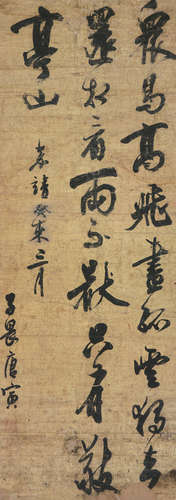 衆鳥高飛盡孤雲獨去
還相看兩不厭只有敬
亭山
嘉靖癸未三月
子畏唐寅